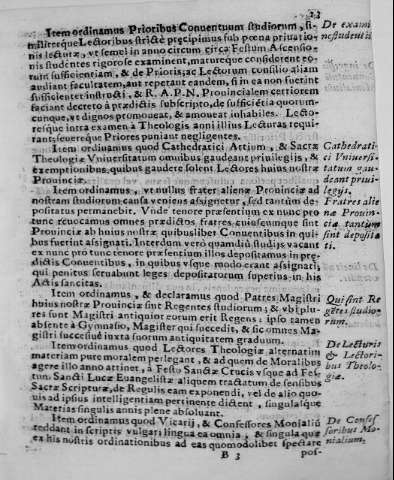 23
Item ordinamus Prioribus Conuentuum studiorum, si-
militerque Lectoribus strictè precipimus sub pœna priuatio-
nis lecturæ, vt semel in anno circum circa Festum Ascensio-
nis studentes rigorose examinent, matureque considerent
sufficientiam, & de Prioris, ac Lectorum consilio aliam
audiant facultatem, aut repetant eandem, si in ea non fuerint
sufficienter instructi, & R. A. P. N. Prouincialem certiorem
faciant decreto à prædictis subscripto, de sufficiẽtia quorum-
cunque, vt dignos promoueat, & amoueat inhabiles. Lecto-
resque intra examen à Theologis anni illius Lecturas requi-
rant, seuereque Priores puniant negligentes.
Item ordinamus quod Cathedratici Artium, & Sacræ
Theologiæ Vniuersitatum omnibus gaudeant priuilegijs, &
exemptionibus, quibus gaudere solent Lectores huius nostræ
Prouinciæ.
Item ordinamus, vt nullus frater alienæ Prouinciæ ad
nostram studiorum causa veniens assignetur, sed tantùm de-
positatus permanebit. Vnde tenore præsentium ex nunc pro
tunc reuocamus omnes prædictos fratres cuiuscunque sint
Prouinciæ ab huius nostræ quibuslibet Conuentibus in qui-
bus fuerint assignati. Interdum verò quamdiù studijs vacant
ex nunc pro tunc tenore præsentium illos depositamus in præ-
dictis Conuentibus, in quibus vsque modo erant assignati,
qui penitus seruabunt leges depositatorum superius in his
Actis sancitas.
Item ordinamus, & declaramus quod Patres Magistri
huius nostræ Prouinciæ sint Regentes studiorum; & vbi plu-
res sunt Magistri antiquior eorum erit Regens: ipso tamen
absente à Gymnasio, Magister qui succedit, & sic omnes Ma-
gistri successiuè iuxta suorum antiquitatem graduum.
Item ordinamus quod Lectores Theologiæ alternatim
materiam pure moralem perlegant, & ad quem de Moralibus
agere illo anno attinet, à Festo Sanctæ Crucis vsque ad Fes-
tum Sancti Lucæ Euangelistæ aliquem tractatum de sensibus
Sacræ Scripturæ, de Regulis eam exponendi, vel de alio quo-
uis ad ipsius intelligentiam pertinente dictent, singulasque
Materias singulis annis plene absoluant.
Item ordinamus quod Vicarij, & Confessores Monialiũ
reddant in scriptis vulgari lingua ea omnia, & singula quæ
ex his nostris ordinationibus ad eas quomodolibet spectare
B 3
pos-
De exami
ne studentiũ
Cathedrati-
ci Vniuersi-
tatum gau-
deant priui-
legijs.
Fratres alie
næ Prouin-
ciæ tantùm
sint deposita
ti.
Qui sint Re
gẽtes studio-
rum.
De Lecturis
& Lectori-
bus Theolo-
giæ.
De Confes
soribus Mo-
nialium.